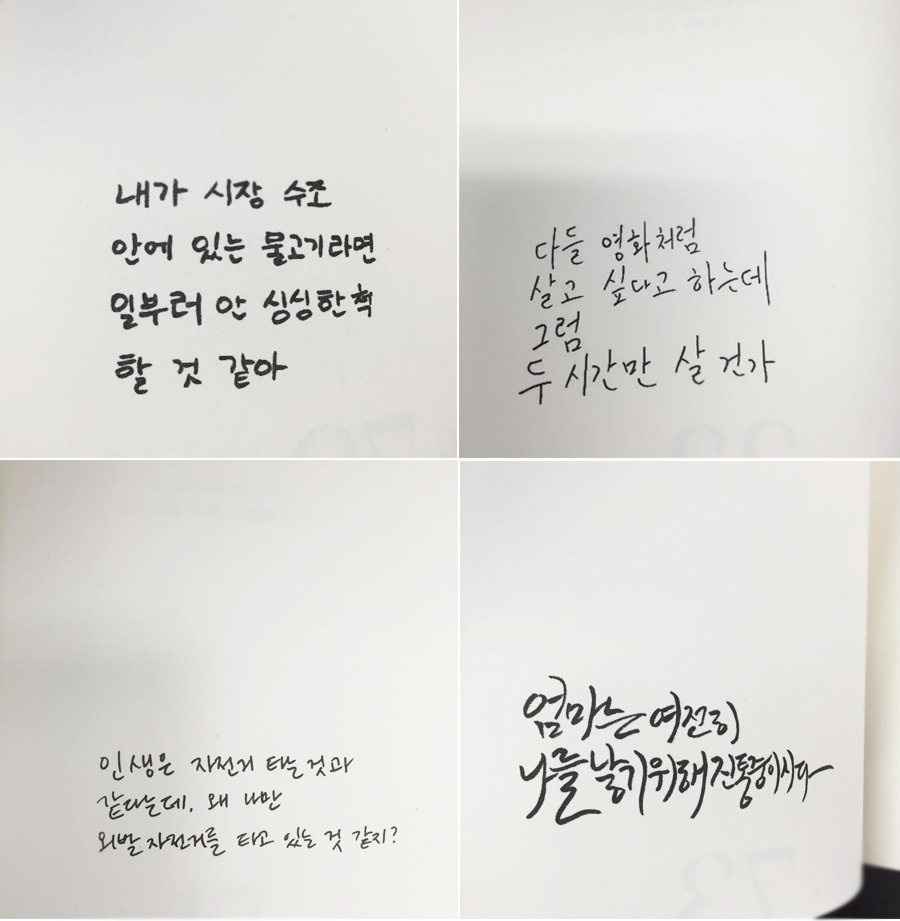 내가 시장 수조
안에 있는 물고기라면
일부러 안 싱싱한 척
할 것 같아
다들 영화처럼
살고 싶다고 하는데
그럼
두 시간만 살 건가
인생은 자전거 타는 것과
같다는데, 왜 나만
외발 자전거를 타고 있는 것 같지?
엄마는 여전히
나를 낳기 위해 진통중이시다